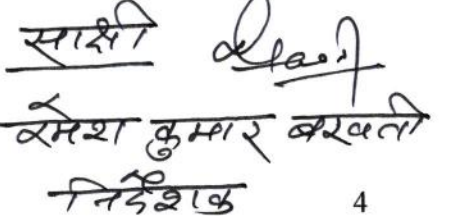 साक्षी
रमेश कुमार बरवती
निर्देशक
4